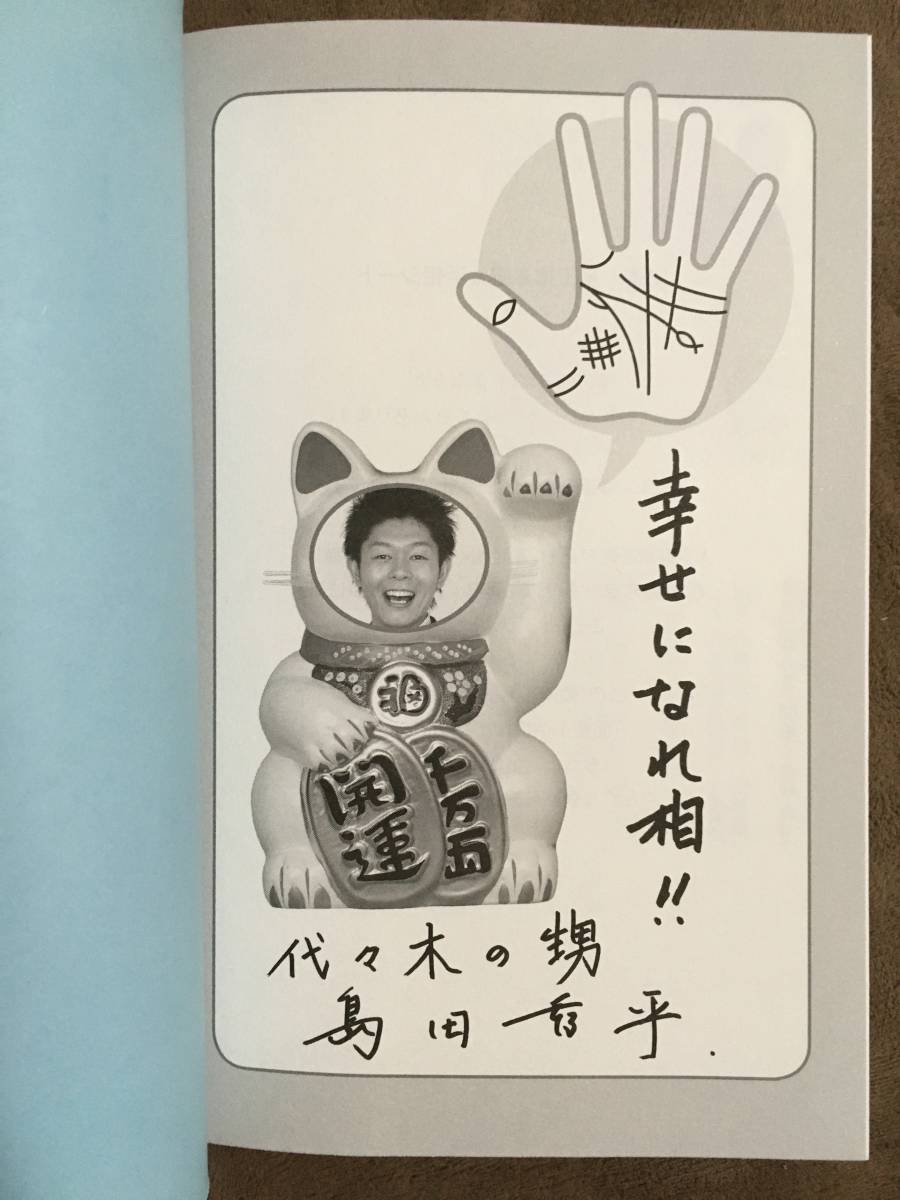 幸せになれ相!!
福
開運
千万両
代々木の甥
島田秀平.